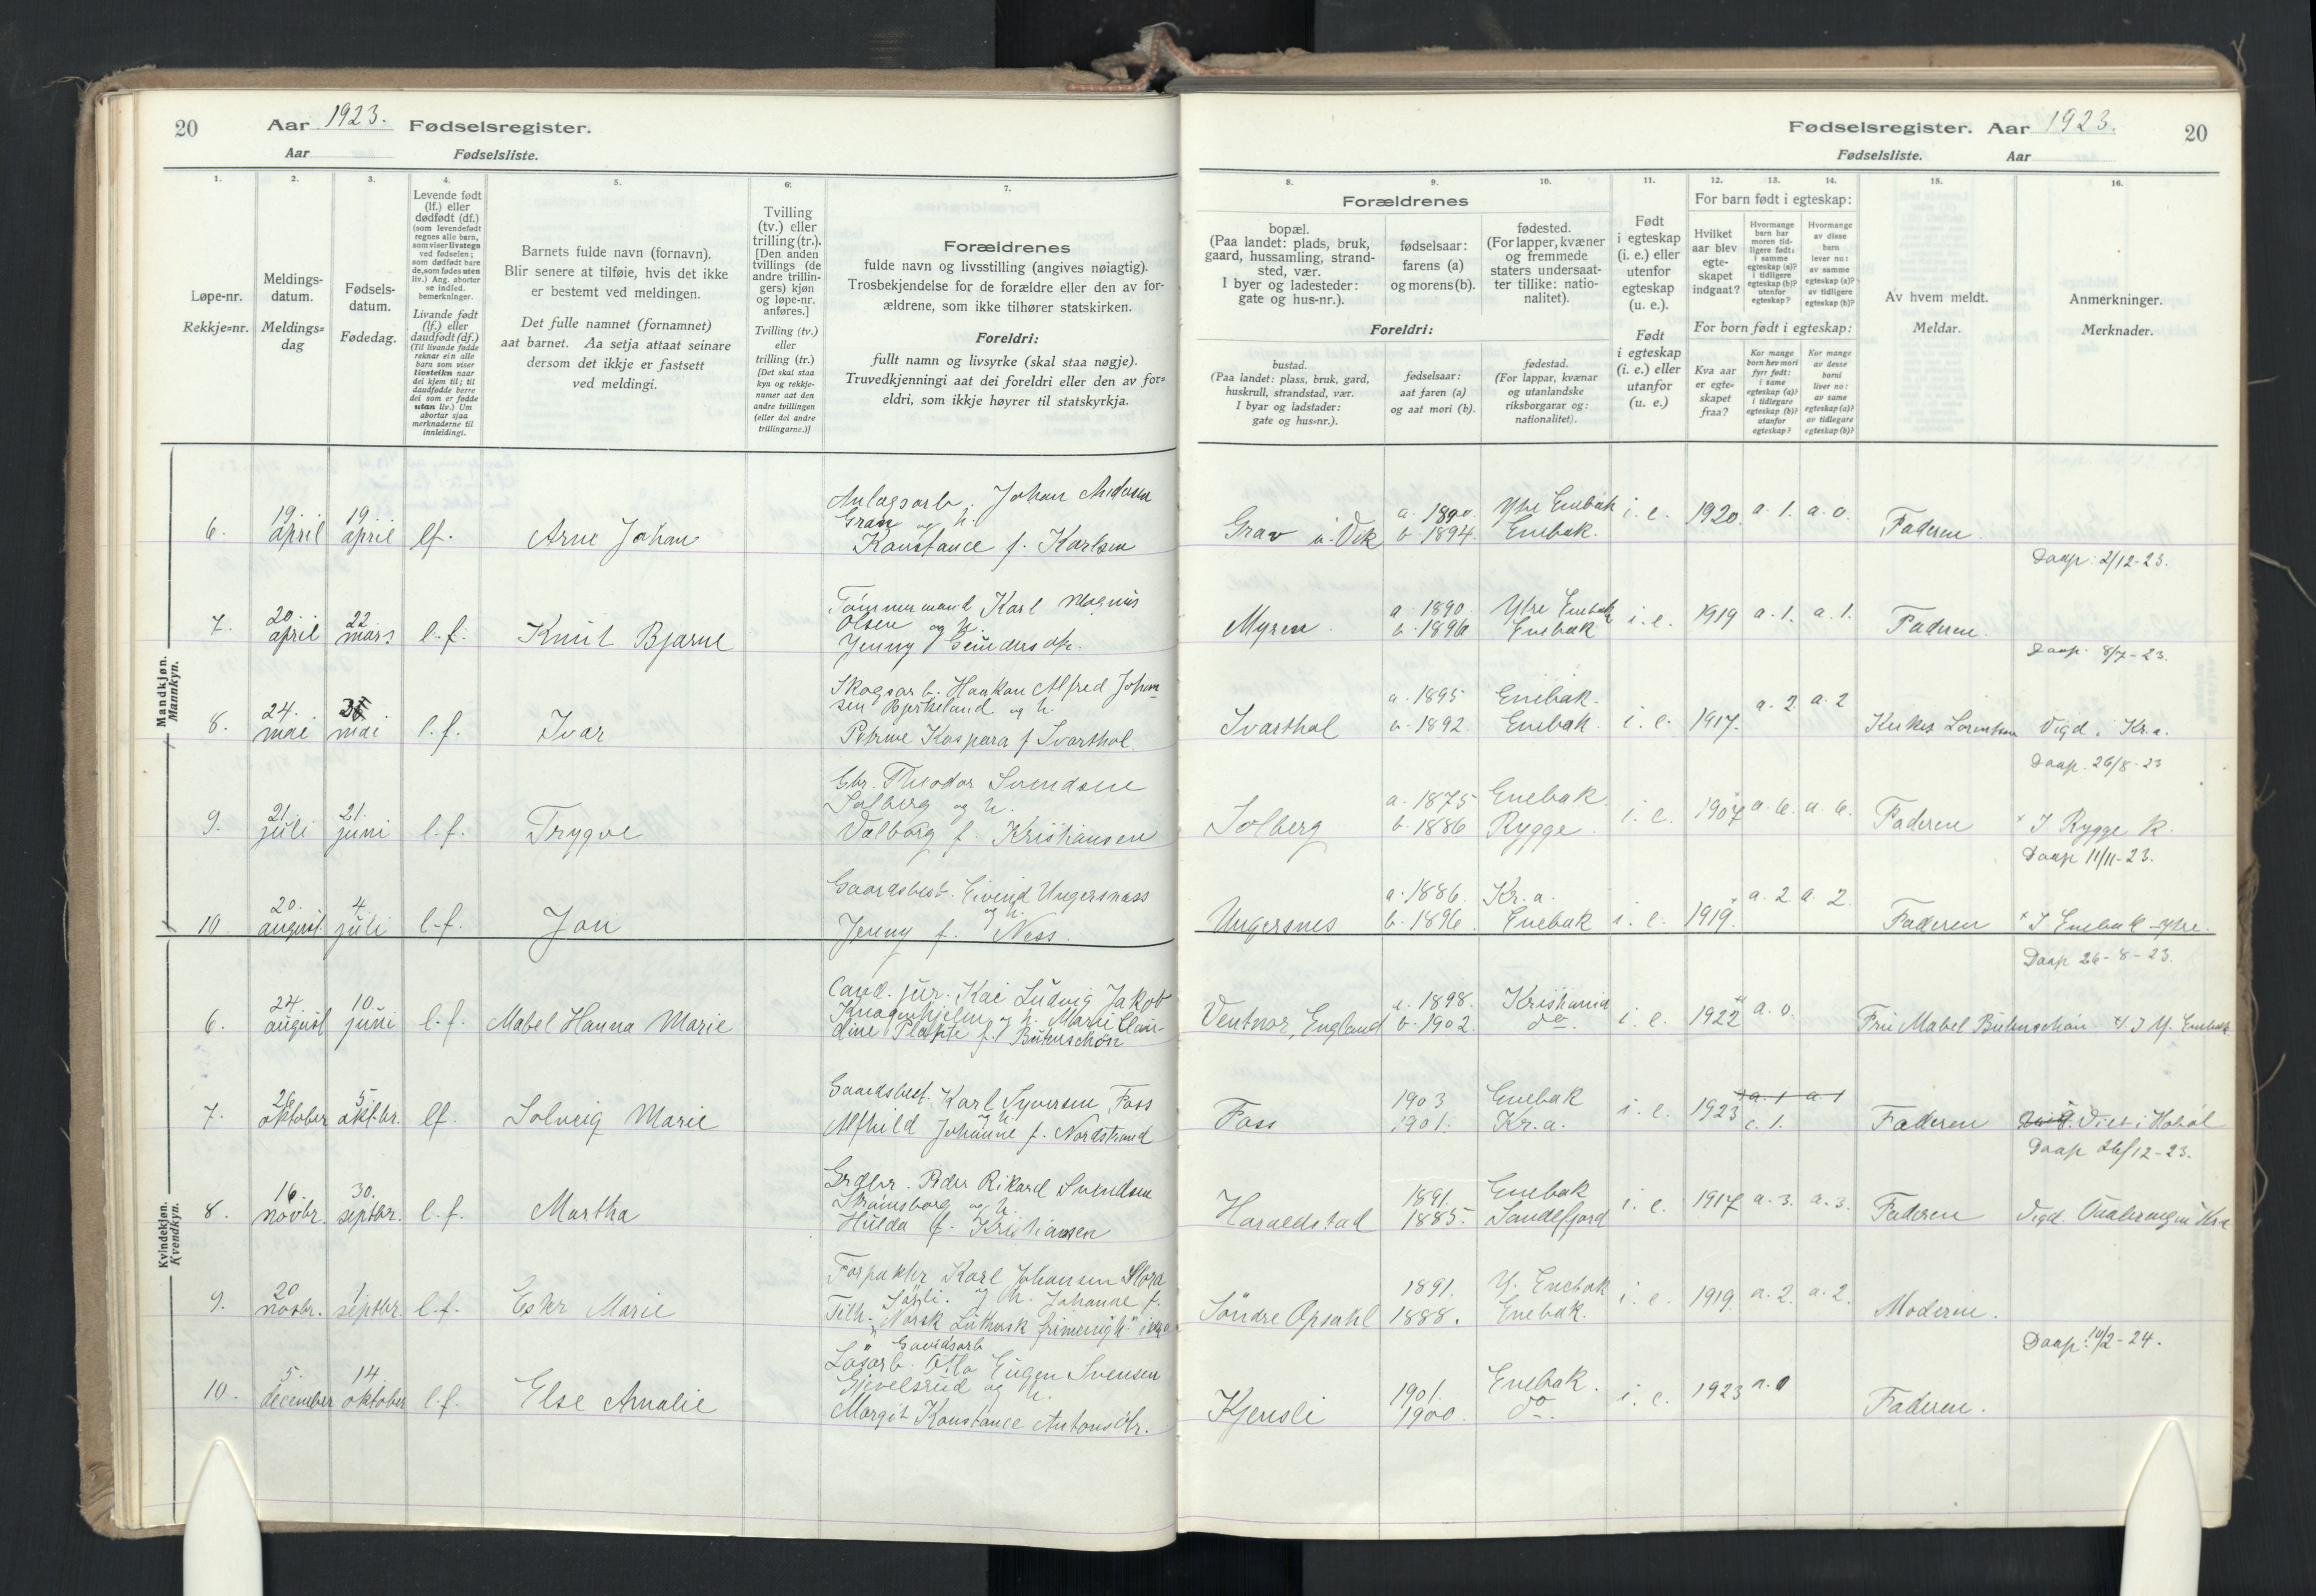 20 Aar 1923. Fødselsregister.
Aar Fødselsliste.
1. 2. 3. 4. 5. 6. 7.
Løpe-nr.
Rekkje=nr.
Meldings-
datum.
Meldings=
dag
Fødsels-
datum.
Fødedag.
Levende født
(lf.) eller
dødfødt (df.)
(som levendefødt
regnes alle barn,
som viser livstegn
ved fødselen;
som dødfødt bare
de, som fødes uten
liv.) Ang. aborter
se indled.
bemerkninger.
Livande født
(lf.) eller
daudfødt (df.)
(Til livande fødde
reknar ein alle
barn som viser
livsteikn naar
dei kjem til; til
daudfødde berre
dei som er fødde
utan liv.) Um
abortar sjaa
merknaderne til
innleidingi.
Barnets fulde navn (fornavn).
Blir senere at tilføie, hvis det ikke
er bestemt ved meldingen.
Det fulle namnet (fornamnet)
aat barnet. Aa setja attaat seinare
dersom det ikkje er fastsett
ved meldingi.
Tvilling
(tv.) eller
trilling (tr.).
[Den anden
tvillings (de
andre trillin-
gers) kjøn
og løpe-nr.
anføres.]
Tvilling (tv.)
eller
trilling (tr.)
[Det skal staa
kyn og rekkje-
numer aat den
andre tvillingen
(eller dei andre
trillingarne.)]
Forældrenes
fulde navn og livsstilling (angives nøiagtig).
Trosbekjendelse for de forældre eller den av for-
ældrene, som ikke tilhører statskirken.
Foreldri:
fullt namn og livsyrke (skal staa nøgje).
Truvedkjenningi aat dei foreldri eller den av for=
eldri, som ikkje høyrer til statskyrkja.
Mandkjøn.
Mannkyn.
6. 19. april 19 april lf. Arne Johan
Anlægsarb. Johan Andersen
Gran og h.
Konstance f. Karlsen
7. 20. april 22 mars l.f. Knut Bjarne
Tømmermand Karl Magnus
Olsen og h.
Jenny Gundersdtr.
8. 24. mai mai l.f. Ivar
Skogsarb. Haakon Alfred Johan-
sen Bjerkeland og h.
Petrine Kaspara f. Svarthol
9. 21. juli 21. juni l.f. Trygve
Gbr. Theodor Svendsen
Solberg og h.
Valborg f. Kristiansen
10. 20. august 4. juli l.f. Jon
Gaardsbest. Eivind Ungersnæss
og h.
Jenny f. Ness.
Kvindekjøn.
Kvendkyn.
6. 24. august 10. juni l.f. Mabel Hanna Marie
Cand. jur. Kai Ludvig Jakob
Knagenhjelm og h. Marie Clau-
dine f. Butenschøn
7. 26 oktober 5. oktbr. lf. Solveig Marie
Gaardsbest. Karl Syversen Foss
og h.
Alfhild Johanne f. Nordstrand
8. 16. novbr. 30. septbr. l.f. Martha
Grdbr. Peder Rikard Svendsen
Strømsborg og h.
Hulda f. Kristiansen
9. 20 novbr. 1 septbr. l.f. Ester Marie
Forpakter Karl Johansen Flora
Sørli. og h. Johanne f.
Tith. "Norsk Luthersk frimenigh."
10. 5. december 14. oktober l.f. Else Amalie
Gaardsarb
Løsarb. Otto Eugen Svensen
Gjevelsrud og h.
Margit Konstance Antonsdtr.
Fødselsregister. Aar 1923. 20
Fødselsliste. Aar
8. 9. 10. 11. 12. 13. 14. 15. 16.
Forældrenes
bopæl.
(Paa landet: plads, bruk,
gaard, hussamling, strand-
sted, vær.
I byer og ladesteder:
gate og hus-nr.).
fødselsaar:
farens (a)
og morens (b).
fødested.
(For lapper, kvæner
og fremmede
staters undersaat-
ter tillike: natio-
nalitet).
Foreldri:
bustad.
(Paa landet: plass, bruk, gard,
huskrull, strandstad, vær.
I byar og ladstader:
gate og hus=nr.).
fødselsaar:
aat faren (a)
og aat mori (b).
fødestad.
(For lappar, kvænar
og utanlandske
riksborgarar og:
nationalitet).
Født
i egteskap
(i. e.) eller
utenfor
egteskap
(u. e.).
Født
i egteskap
(i. e.) eller
utanfor
(u. e.)
For barn født i egteskap:
Hvilket
aar blev
egte-
skapet
indgaat?
Hvormange
barn har
moren tid-
ligere født:
i samme
egteskap (a)?
i tidligere
egteskap (b)?
utenfor
egteskap?
Hvormange
av disse
barn
lever nu:
av samme
egteskap (a)?
av tidligere
egteskap (b)?
For born født i egteskap:
Kva aar
er egte-
skapet
fraa?
Kor mange
born hev mori
fyrr født:
i same
egteskap (a)?
i tidlegare
egteskap (b)?
utanfor
egteskap?
Kor mange
av desse
borni
liver no:
av same
egteskap (a)?
av tidlegare
egteskap (b)?
Av hvem meldt.
Meldar.
Anmerkninger.
Merknader.
Grav i. Vik a. 1890. b. 1894. Ytre Enebak Enebak. i. e. 1920. a. 1. a. 0. Faderen.
Daap: 2/12-23.
Myren. a. 1890. b. 1896 Ytre Enebak Enebak i. e. 1919 a. 1. a. 1. Faderen.
Daap. 8/7-23.
Svarthol a. 1895 b. 1892. Enebak. Enebak. i. e. 1917. a. 2. a. 2 Lorentsen Vigd. i Kr.a.
Daap. 26/8-23
Solberg a. 1875 b. 1886 Enebak. Rygge. i. e. 1907 a. 6. a. 6. Faderen × I Rygge K.
Daap 11/11-23.
Ungersnes a. 1886. b. 1896. Kr.a. Enebak i. e. 1919. a. 2. a. 2. Faderen × I Enebak-ytre.
Daap 26-8-23.
Ventnor, England a. 1898. b. 1902. Kristiania do. i. e. 1922 a. 0. Fru Mabel Butenschøn. I Y. Enebak
Foss 1903 1901. Enebak Kr.a. i. e. 1923 a. 1 a. 1 c. 1. Faderen Viet i Hobøl
Daap 26/12-23.
Haraldstad 1891. 1885. Enebak Sandefjord i. e. 1917 a. 3. a. 3. Faderen Vigd.
Søndre Opsahl 1891. 1888. Y. Enebak Enebak. i. e. 1919. a. 2. a. 2. Moderen.
Daap: 10/2-24.
Kjensli 1901. 1900. Enebak. do. i. e. 1923 a. 0 Faderen.